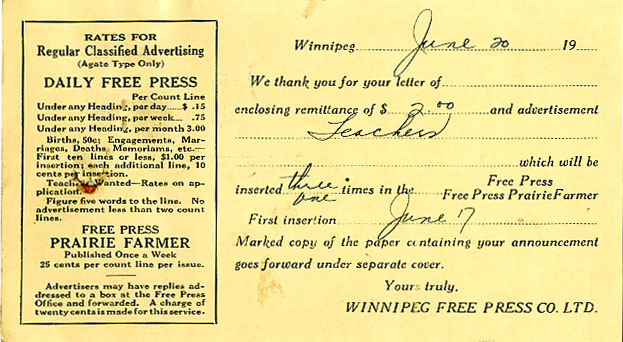 RATES FOR
Regular Classified Advertising
(Agate Type Only)
DAILY FREE PRESS
Per Count Line
Under any Heading, per day.....$ .15
Under any Heading, per week..... .75
Under any Heading, per month 3.00
Births, 50c; Engagements, Mar-
riages, Deaths, Memoriams, etc.—
First ten lines or less, $1.00 per
insertion; each additional line, 10
cents per insertion.
Teachers Wanted—Rates on ap-
plication.
Figure five words to the line. No
advertisement less than two count
lines.
FREE PRESS
PRAIRIE FARMER
Published Once a Week
25 cents per count line per issue.
Advertisers may have replies ad-
dressed to a box at the Free Press
Office and forwarded. A charge of
twenty cents is made for this service.
Winnipeg June 20 19
We thank you for your letter of
enclosing remittance of $ 2.00 and advertisement
Teachers
which will be
inserted three times in the Free Press
one Free Press Prairie Farmer
First insertion June 17
Marked copy of the paper containing your announcement
goes forward under separate cover.
Yours truly,
WINNIPEG FREE PRESS CO. LTD.